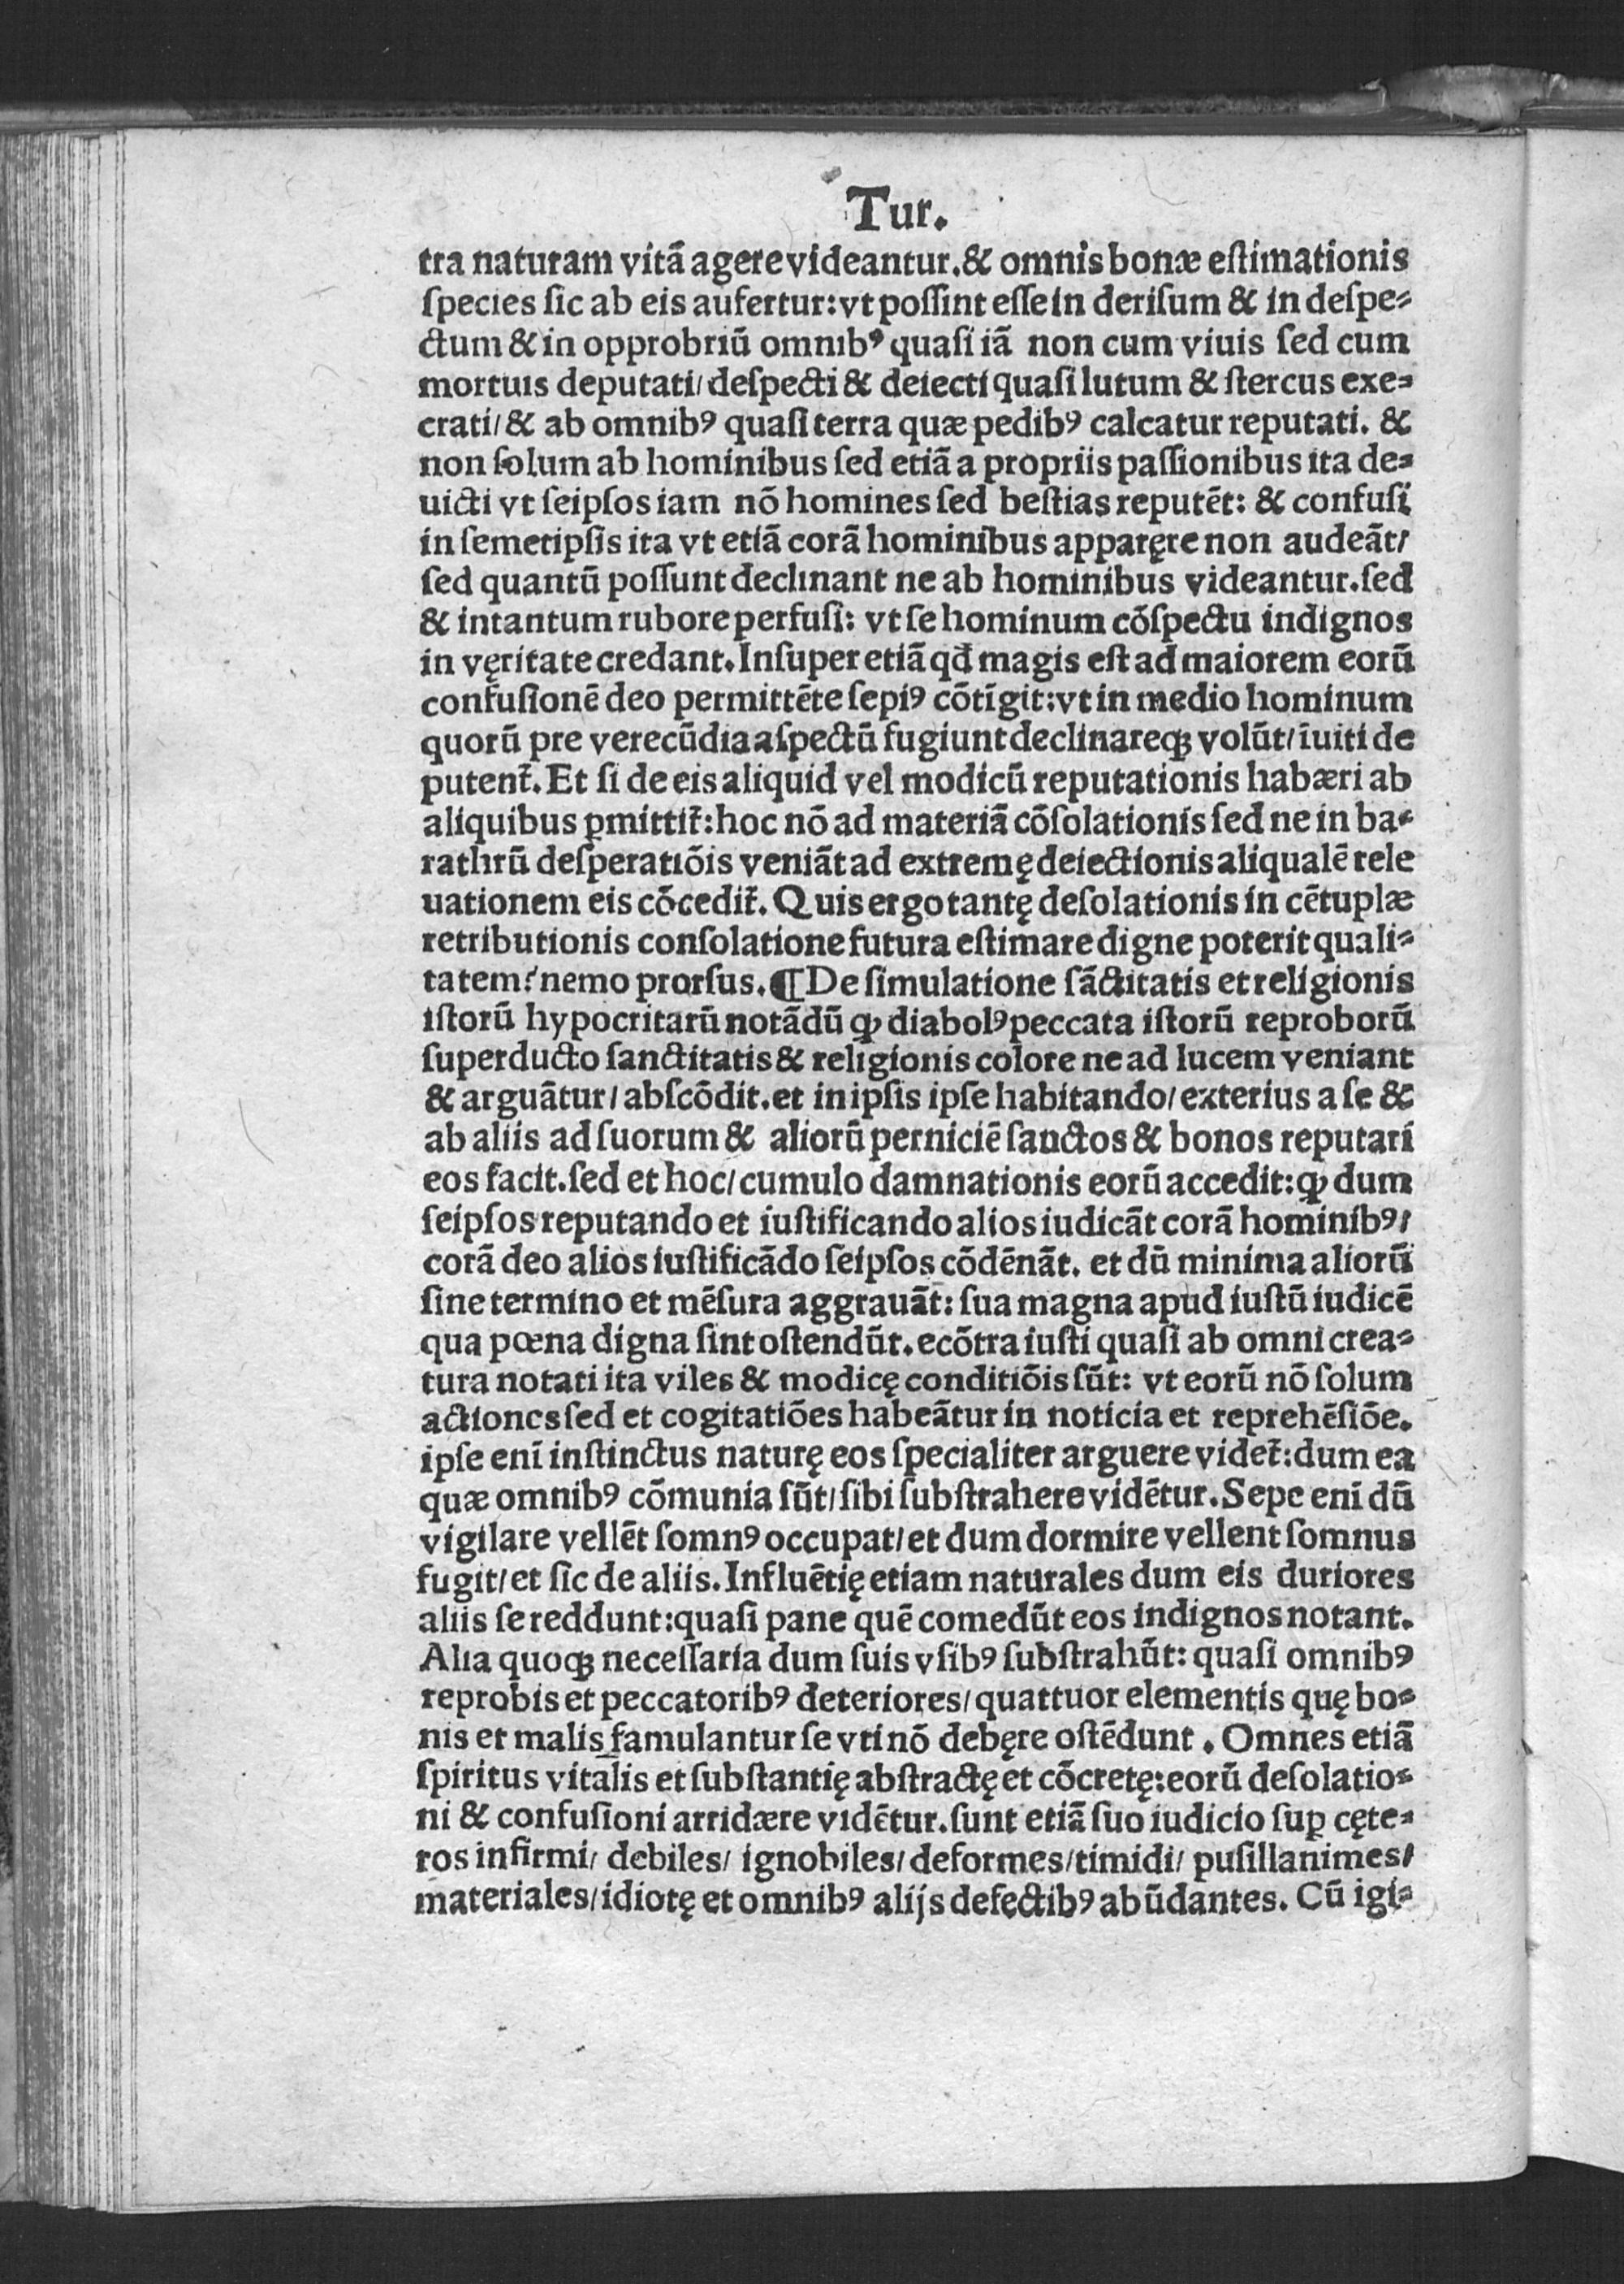 Tur.
tra naturam vitā agere videantur. & omnis bonæ eſtimationis
ſpecies ſic ab eis aufertur: vt poſſint eſſe in deriſum & in deſpe⸗
ctum & in opprobriū omnibꝰ quaſi iā non cum viuis ſed cum
mortuis deputati/ deſpecti & deiecti quaſi lutum & ſtercus exe⸗
crati/ & ab omnibꝰ quaſi terra quæ pedibꝰ calcatur reputati. &
non ſolum ab hominibus ſed etiā a propriis paſſionibus ita de⸗
uicti vt ſeipſos iam nō homines ſed beſtias reputēt: & confuſi
in ſemetipſis ita vt etiā corā hominibus apparęre non audeāt/
ſed quantū poſſunt declinant ne ab hominibus videantur. ſed
& intantum rubore perfuſi: vt ſe hominum cōſpectu indignos
in vęritate credant. Inſuper etiā qđ magis eſt ad maiorem eorū
confuſionē deo permittēte ſepiꝰ cōtīgit: vt in medio hominum
quorū pre verecūdia aſpectū fugiunt declinareqꝫ volūt/ īuiti de
putent̄. Et ſi de eis aliquid vel modicū reputationis habæri ab
aliquibus ꝑmittit̄: hoc nō ad materiā cōſolationis ſed ne in ba⸗
rathrū deſperatiōis veniāt ad extremę deiectionis aliqualē rele
uationem eis cōcedit̄. Quis ergo tantę deſolationis in cētuplæ
retributionis conſolatione futura eſtimare digne poterit quali⸗
tatem? nemo prorſus. ¶ De ſimulatione ſāctitatis et religionis
iſtorū hypocritarū notādū ꝙ diabolꝰ peccata iſtorū reproborū
ſuperducto ſanctitatis & religionis colore ne ad lucem veniant
& arguātur/ abſcōdit. et in ipſis ipſe habitando/ exterius a ſe &
ab aliis ad ſuorum & aliorū perniciē ſanctos & bonos reputari
eos facit. ſed et hoc/ cumulo damnationis eorū accedit: ꝙ dum
ſeipſos reputando et iuſtificando alios iudicāt corā hominibꝰ/
corā deo alios iuſtificādo ſeipſos cōdēnāt. et dū minima aliorū
ſine termino et mēſura aggrauāt: ſua magna apud iuſtū iudicē
qua pœna digna ſint oſtendūt. ecōtra iuſti quaſi ab omni crea⸗
tura notati ita viles & modicę conditiōis ſūt: vt eorū nō ſolum
actiones ſed et cogitatiōes habeātur in noticia et reprehēſiōe.
ipſe enī inſtinctus naturę eos ſpecialiter arguere videt̄: dum ea
quæ omnibꝰ cōmunia ſūt/ ſibi ſubſtrahere vidētur. Sepe enī dū
vigilare vellēt ſomnꝰ occupat/ et dum dormire vellent ſomnus
fugit/ et ſic de aliis. Influētię etiam naturales dum eis duriores
aliis ſe reddunt: quaſi pane quē comedūt eos indignos notant.
Alia quoqꝫ neceſſaria dum ſuis vſibꝰ ſubſtrahūt: quaſi omnibꝰ
reprobis et peccatoribꝰ deteriores/ quattuor elementis quę bo⸗
nis et malis famulantur ſe vti nō debęre oſtēdunt. Omnes etiā
ſpiritus vitalis et ſubſtantię abſtractę et cōcretę: eorū deſolatio⸗
ni & confuſioni arridære vidētur. ſunt etiā ſuo iudicio ſuꝑ cęte⸗
ros infirmi/ debiles/ ignobiles/ deformes/ timidi/ puſillanimes/
materiales/ idiotę et omnibꝰ alijs defectibꝰ abūdantes. Cū igi⸗